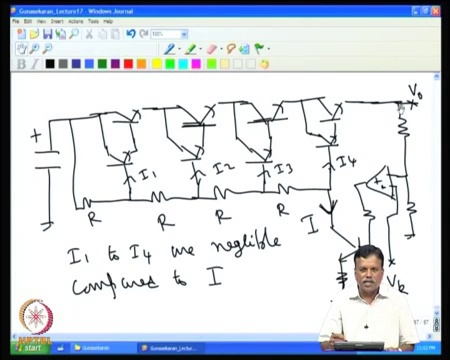 Gunasekaran_Lecture17 - Windows Journal
File Edit View Insert Actions Tools Help
150%
B I
V0
+
I1 I2 I3 I4
R R R R
I
I1 to I4 are neglible
compared to I
VR
NPTEL
start Gunasekaran Gunasekaran_Lectu...